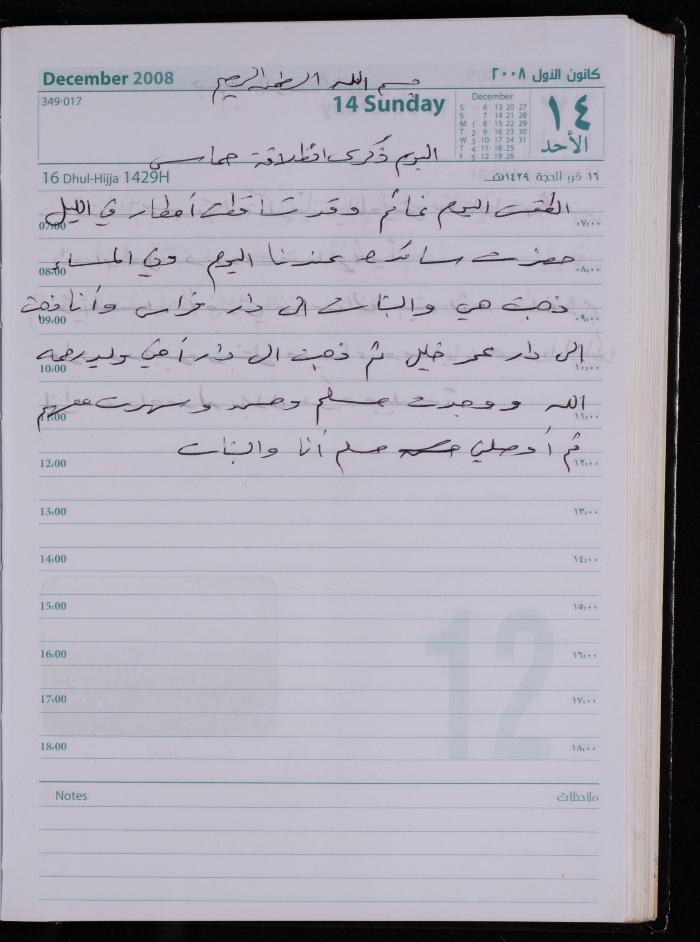 December 2008
بسم الله الرحمن الرحيم
كانون الأول ٢٠٠٨
349-017
14 Sunday
December
S 6 13 20 27
S 7 14 21 28
M 1 8 15 22 29
T 2 9 16 23 30
W 3 10 17 24 31
T 4 11 18 25
F 5 12 19 26
١٤
الأحد
اليوم ذكرى انطلاقة حماس
16 Dhul-Hijja 1429H
١٦ ذي الحجة ١٤٢٩هـ
الطقس اليوم غائم وقد تساقطت أمطار في الليل
07:00 ٠٧:٠٠
حضرت ساكره عندنا اليوم وفي المساء
08:00 ٠٨:٠٠
ذهبت هي والبنات الى دار فراس وأنا ذهبت
09:00 ٠٩:٠٠
الى دار عمر خليل ثم ذهبت الى دار أخي وليد رحمه
10:00 ١٠:٠٠
الله ووجدت مسلم وحمد وسهرت معهم
11:00 ١١:٠٠
ثم أوصلني مسلم أنا والبنات
12:00 ١٢:٠٠
13:00 ١٣:٠٠
14:00 ١٤:٠٠
15:00 ١٥:٠٠
16:00 ١٦:٠٠
17:00 ١٧:٠٠
18:00 ١٨:٠٠
12
Notes ملاحظات